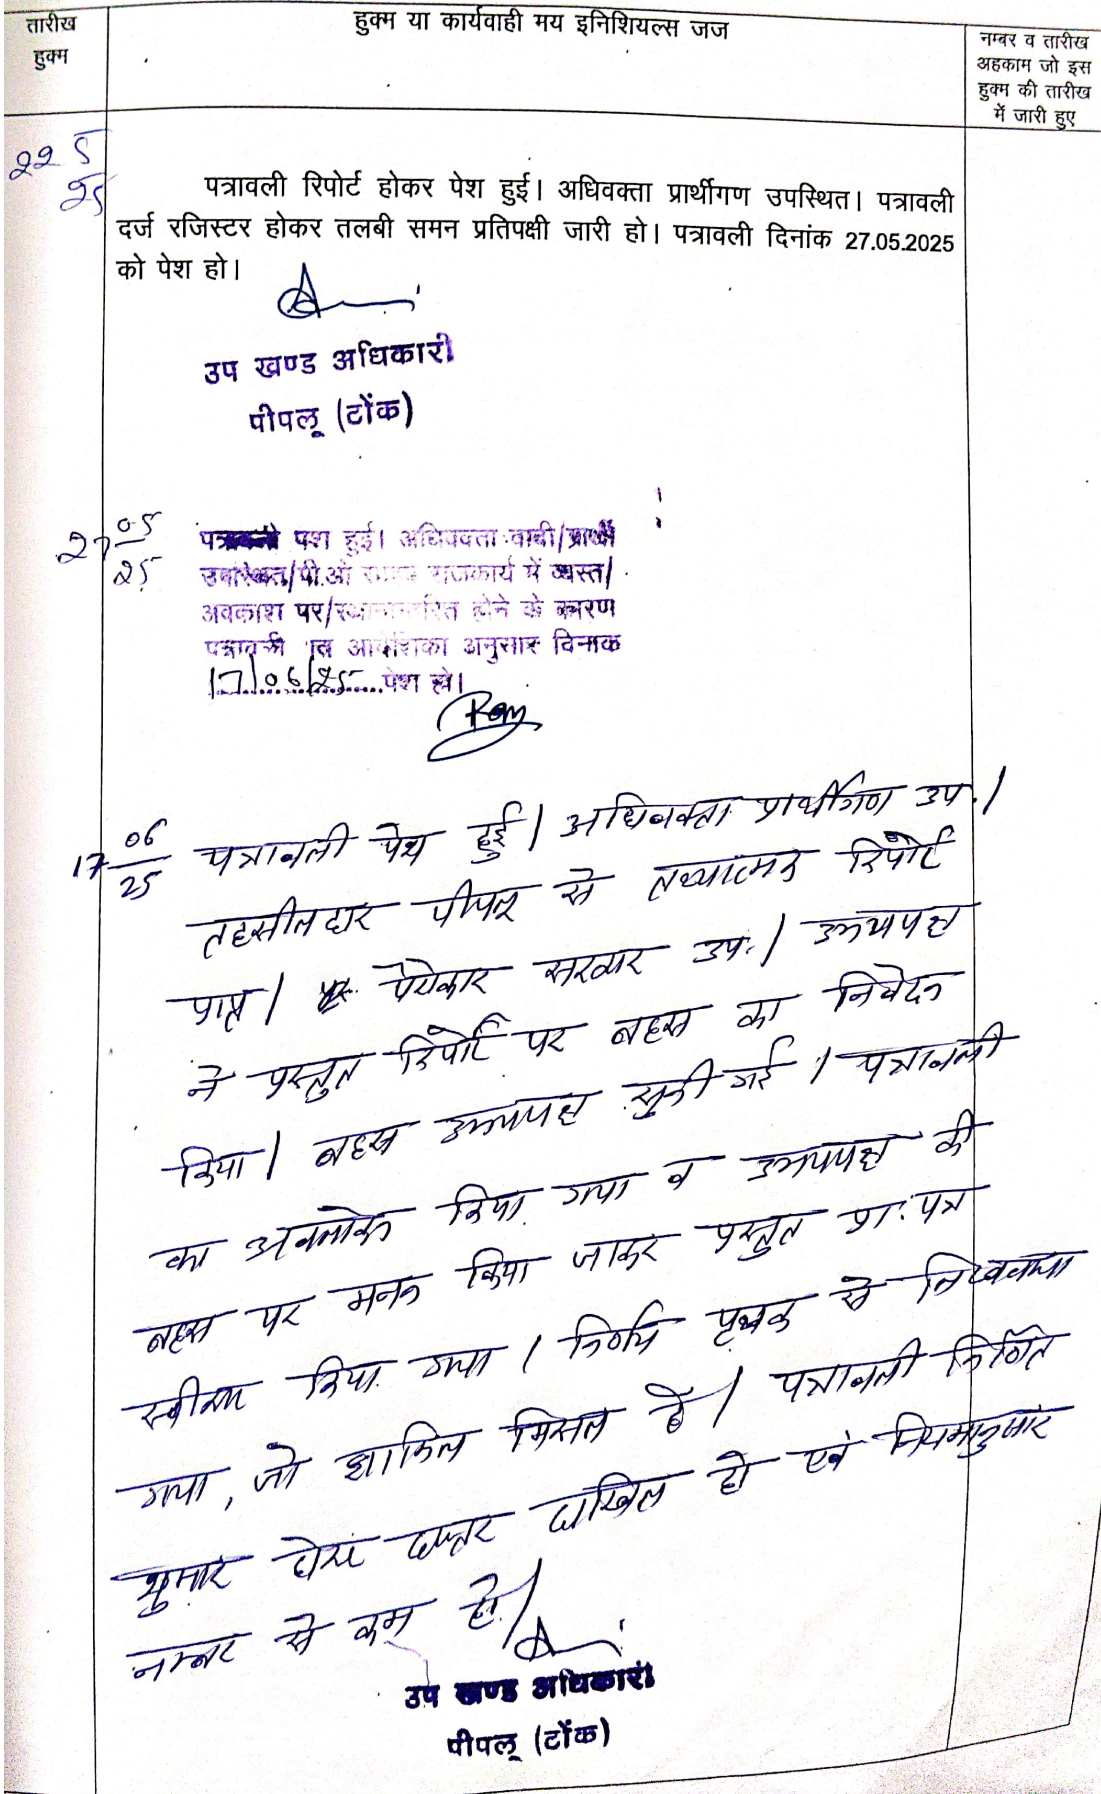 तारीख
हुक्म
हुक्म या कार्यवाही मय इनिशियल्स जज
नम्बर व तारीख
अहकाम जो इस
हुक्म की तारीख
में जारी हुए
22 5
25
पत्रावली रिपोर्ट होकर पेश हुई। अधिवक्ता प्रार्थीगण उपस्थित। पत्रावली
दर्ज रजिस्टर होकर तलबी समन प्रतिपक्षी जारी हो। पत्रावली दिनांक 27.05.2025
को पेश हो।
उप खण्ड अधिकारी
पीपलू (टोंक)
27 05
25
पत्रावली पेश हुई। अधिवक्ता वादी/प्रार्थी
उपस्थित/पी.ओ राजकार्य में व्यस्त/
अवकाश पर/स्थानान्तरित होने के कारण
पत्रावली गत आदेशिका अनुसार दिनांक
17/06/25 पेश हो।
17 06
25
पत्रावली पेश हुई। अधिवक्ता प्रार्थीगण उप.।
तहसीलदार पीपलू से तथ्यात्मक रिपोर्ट
प्राप्त। पेरोकार सरकार उप.। उभयपक्ष
ने प्रस्तुत रिपोर्ट पर बहस का निवेदन
किया। बहस उभयपक्ष सुनी गई। पत्रावली
का अवलोकन किया गया व उभयपक्ष की
बहस पर मनन किया जाकर प्रस्तुत प्रा.पत्र
स्वीकार किया गया। निर्णय पृथक से लिखवाया
गया, जो शामिल मिसल है। पत्रावली निर्णित
शुमार होकर दफ्तर दाखिल हो एवं नियमानुसार
नम्बर से कम हो।
उप खण्ड अधिकारी
पीपलू (टोंक)